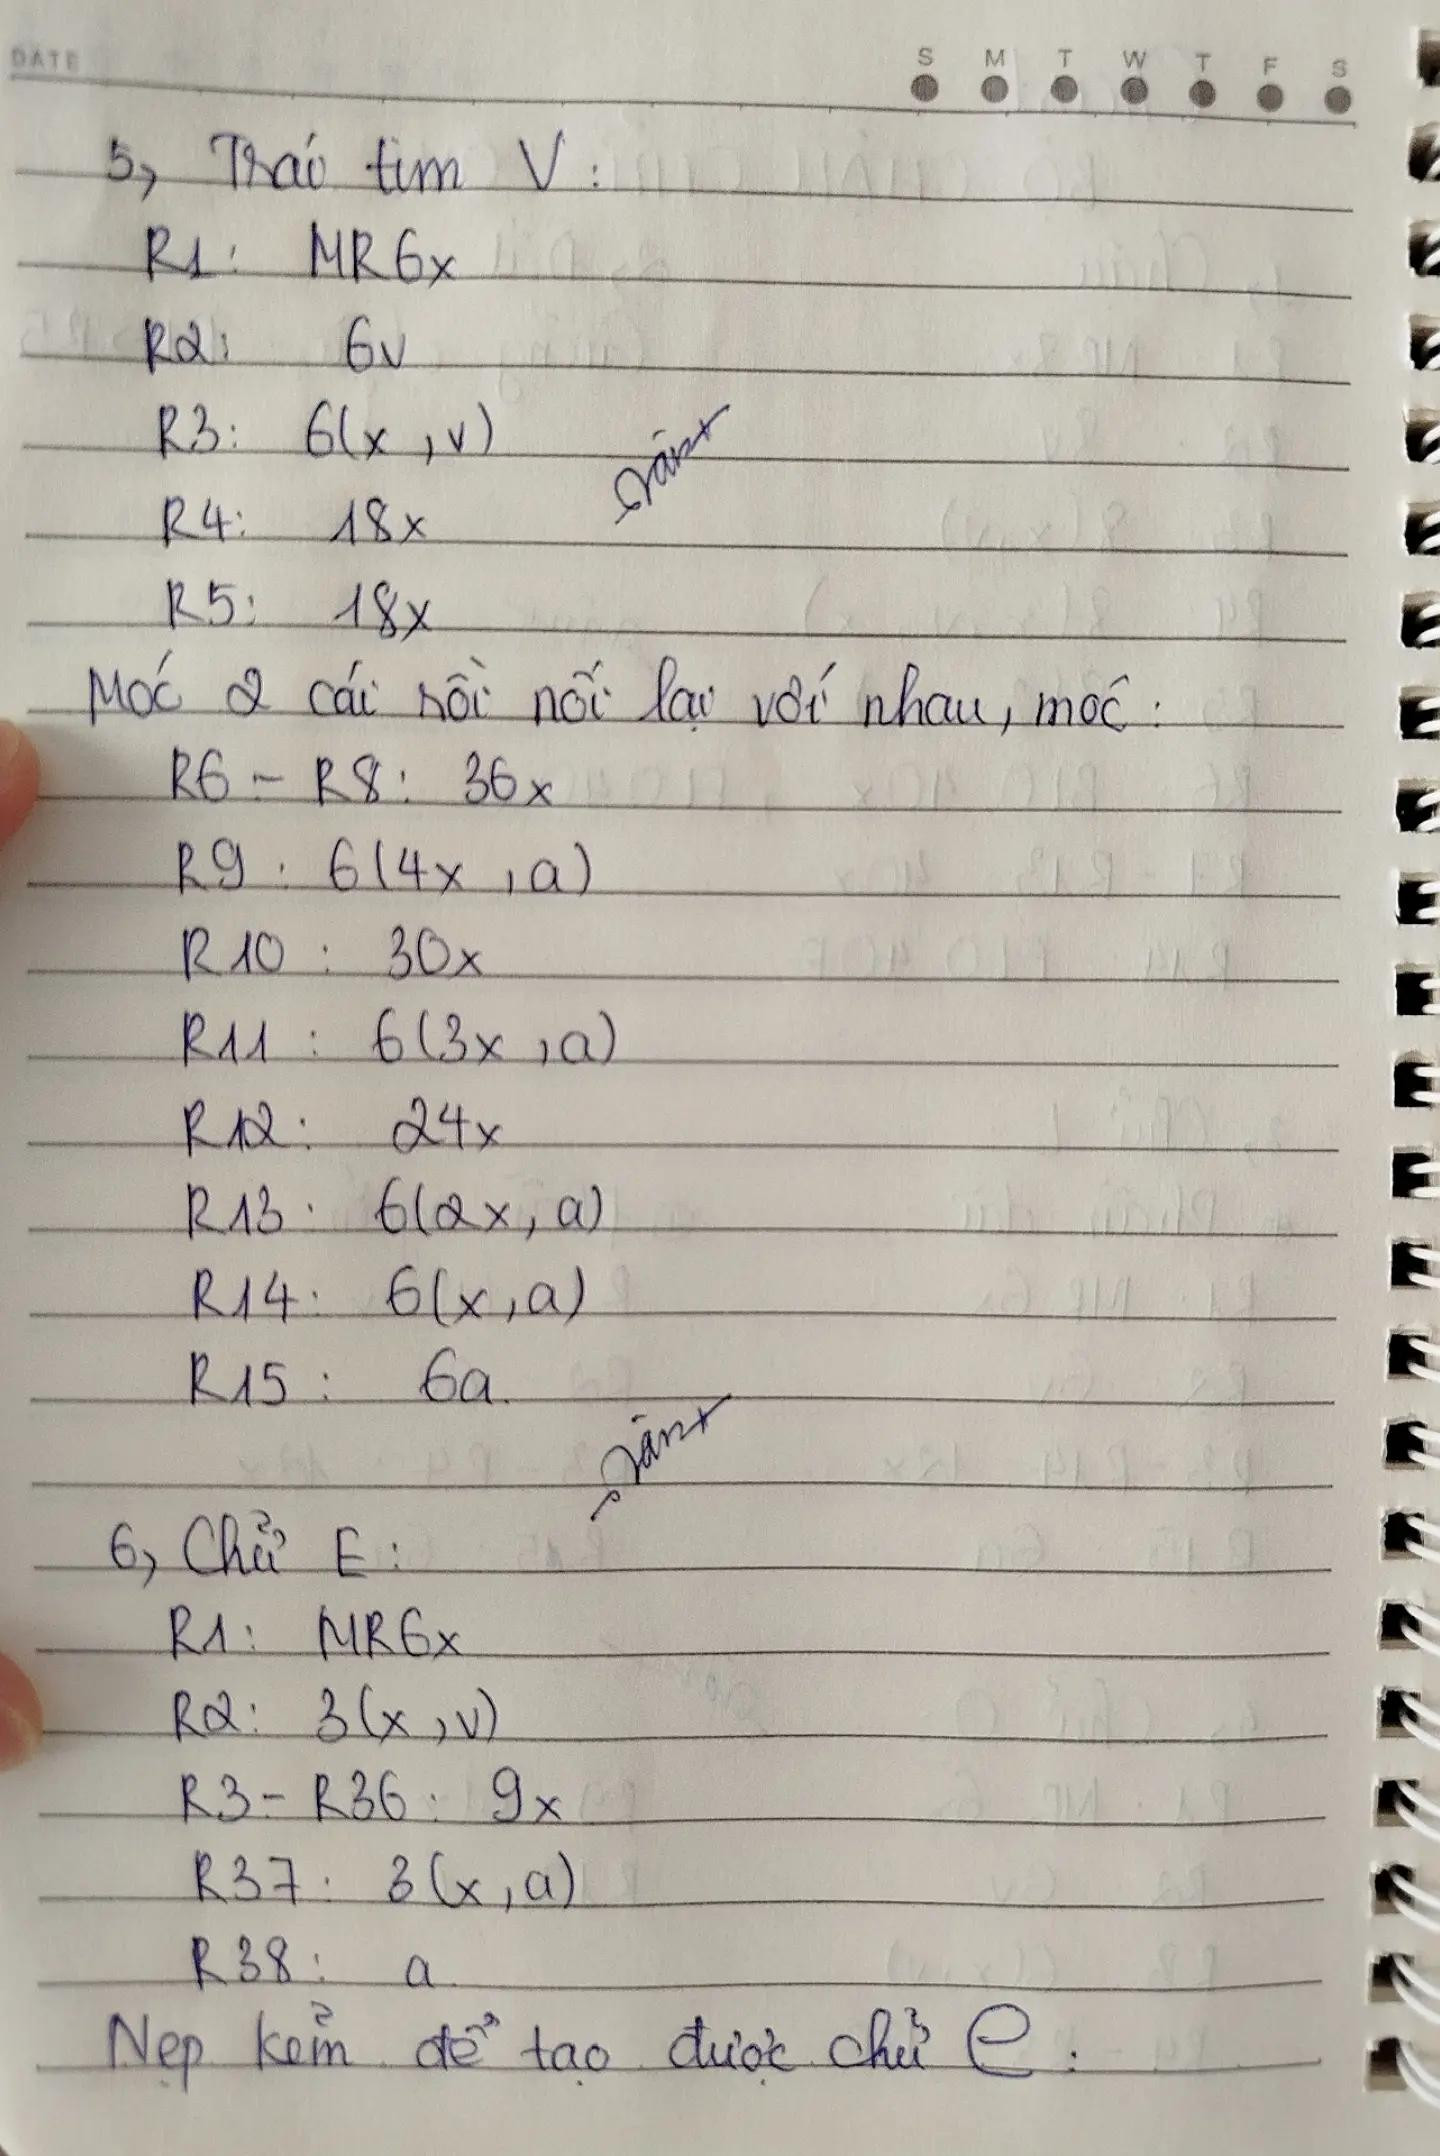 DATE
S M T W T F S
5, Trái tim V:
R1: MR6x
R2: 6v
R3: 6(x,v)
R4: 18x
R5: 18x
Móc 2 cái rồi nối lại với nhau, móc:
R6 - R8: 36x
R9: 6(4x,a)
R10: 30x
R11: 6(3x,a)
R12: 24x
R13: 6(2x,a)
R14: 6(x,a)
R15: 6a.
6, Chử E:
R1: MR6x
R2: 3(x,v)
R3 - R36: 9x
R37: 3(x,a)
R38: a
Nẹp kẻm để tạo được chử e.